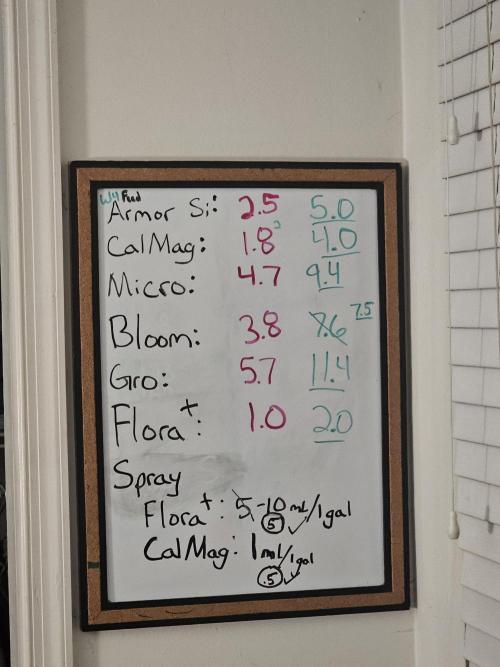 W4 Feed
Armor Si: 2.5 5.0
CalMag: 1.8 2 4.0
Micro: 4.7 9.4
Bloom: 3.8 7.6 7.5
Gro: 5.7 11.4
Flora+: 1.0 2.0
Spray
Flora+: 5-10mL/1gal
5
CalMag: 1mL/1gal
.5